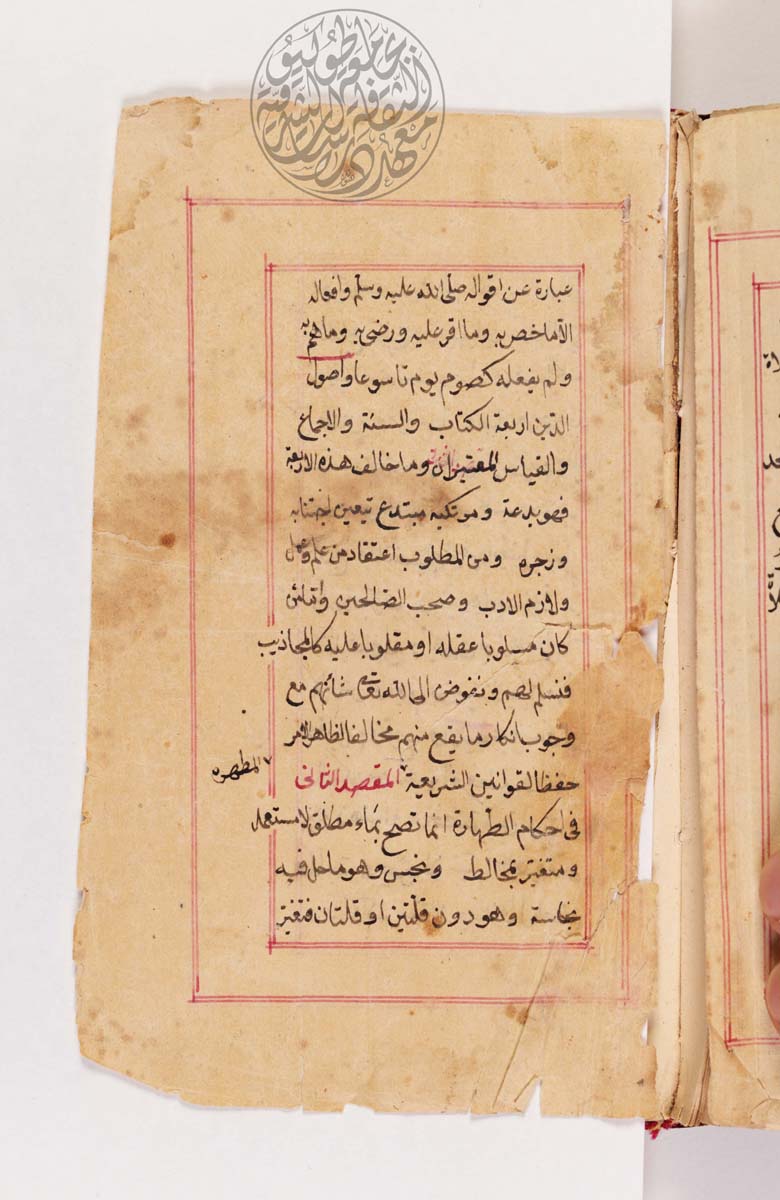 عبارة عن اقواله صلى الله عليه وسلم وافعاله
الا ما خص به وما اقر عليه ورضى به وما هم به
ولم يفعله كصوم يوم تاسوعا واصول
الدين اربعة الكتاب والسنة والاجماع
والقياس المعتبران وما خالف هذه الاربعة
فهو بدعة ومرتكبه مبتدع تيعين اجتنابه
وزجره ومن المطلوب اعتقاد من علم وعمل
ولازم الادب وصحب الصالحين واما من
كان مسلوبا عقله او مغلوبا عليه كالمجاذيب
فنسلم لهم ونفوض الى الله تعالى شانهم مع
وجوب انكار ما يقع منهم مخالفا لظاهر الامر
حفظا لقوانين الشريعية المطهره المقصد الثانى
فى احكام الطهارة انما تصح بماء مطلق لا مستعمل
ومتغير بمخالط ونجس وهو ما حل فيه
نجاسة وهو دون قلتين او قلتان فتغير